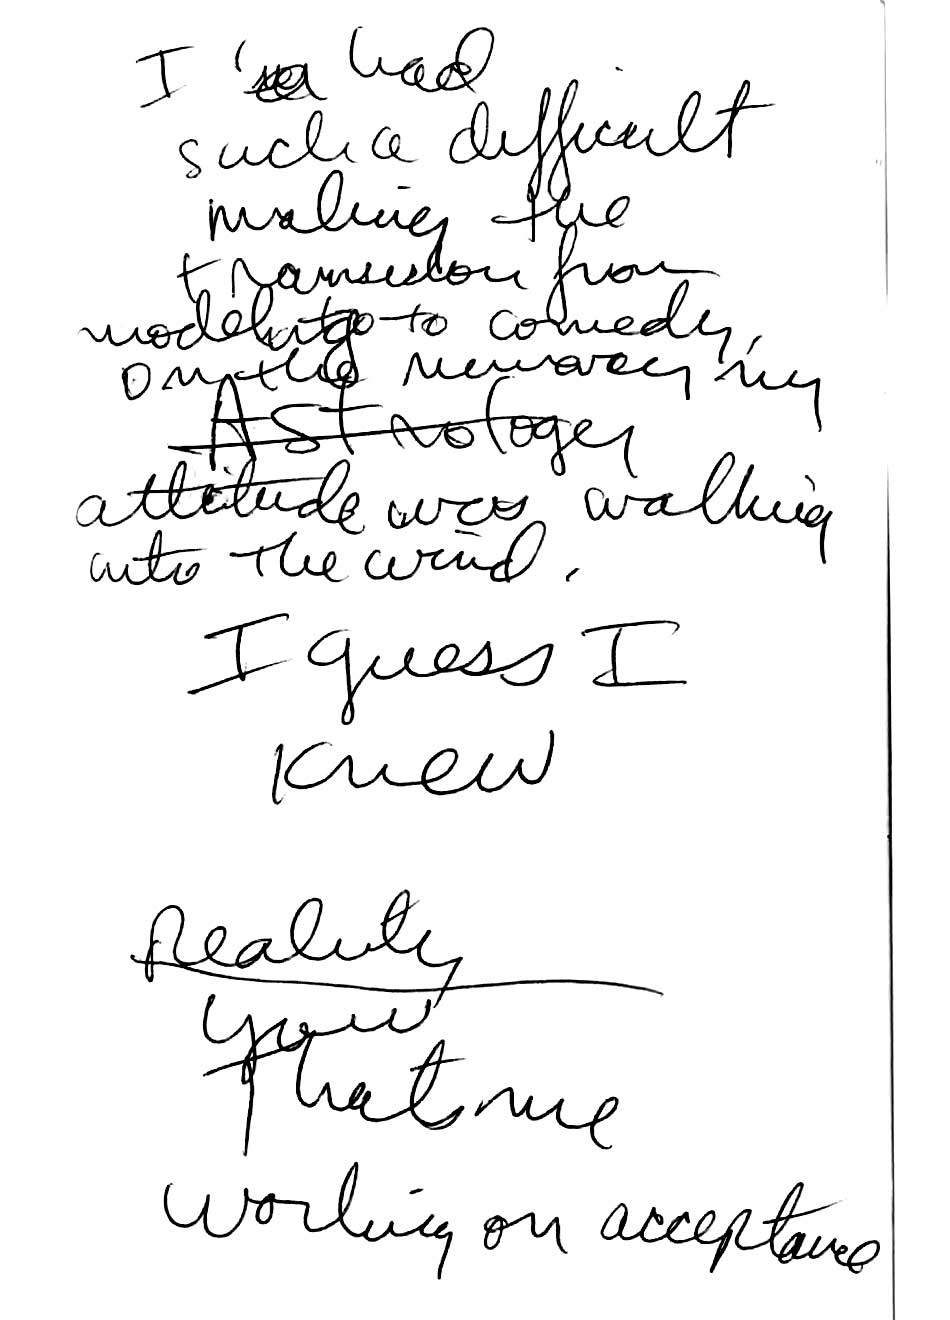 I 've had
such a difficult
making the
transition from
modeling to to comedy,
on the runway my
Astrology
attitude was walking
into the wind.
I guess I
knew
Reality
your
That's me
working on acceptance